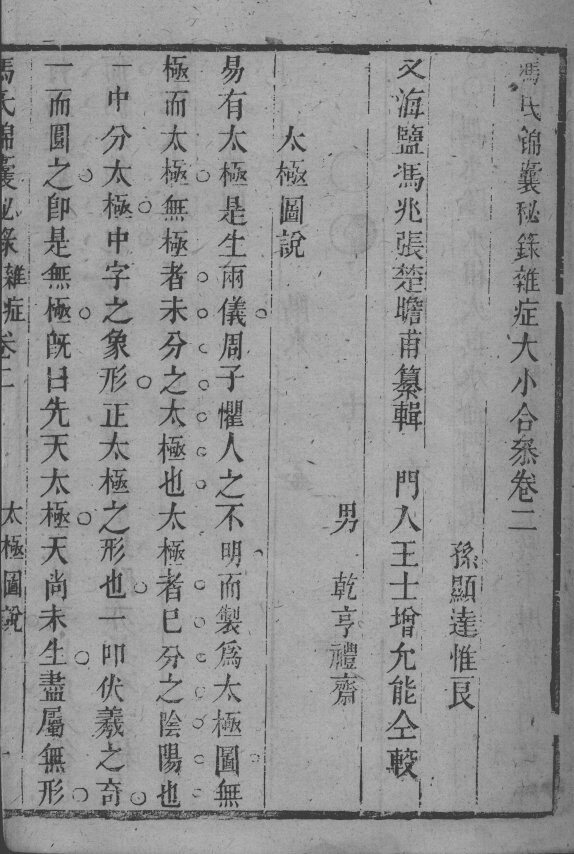 馮氏錦囊秘錄雜症大小合叅卷二
孫顯達惟良
海鹽馮兆張楚瞻甫纂輯　門人王士增允能仝較
男　乾亨禮齋
太極圖說
易有太極是生兩儀周子懼人之不明而製爲太極圖無
極而太極無極者未分之太極也太極者已分之陰陽也
一中分太極中字之象形正太極之形也一卽伏羲之奇
一而圓之卽是無極旣曰先天太極天尚未生盡屬無形
馮氏錦囊秘錄雜症卷二　太極圖說　一